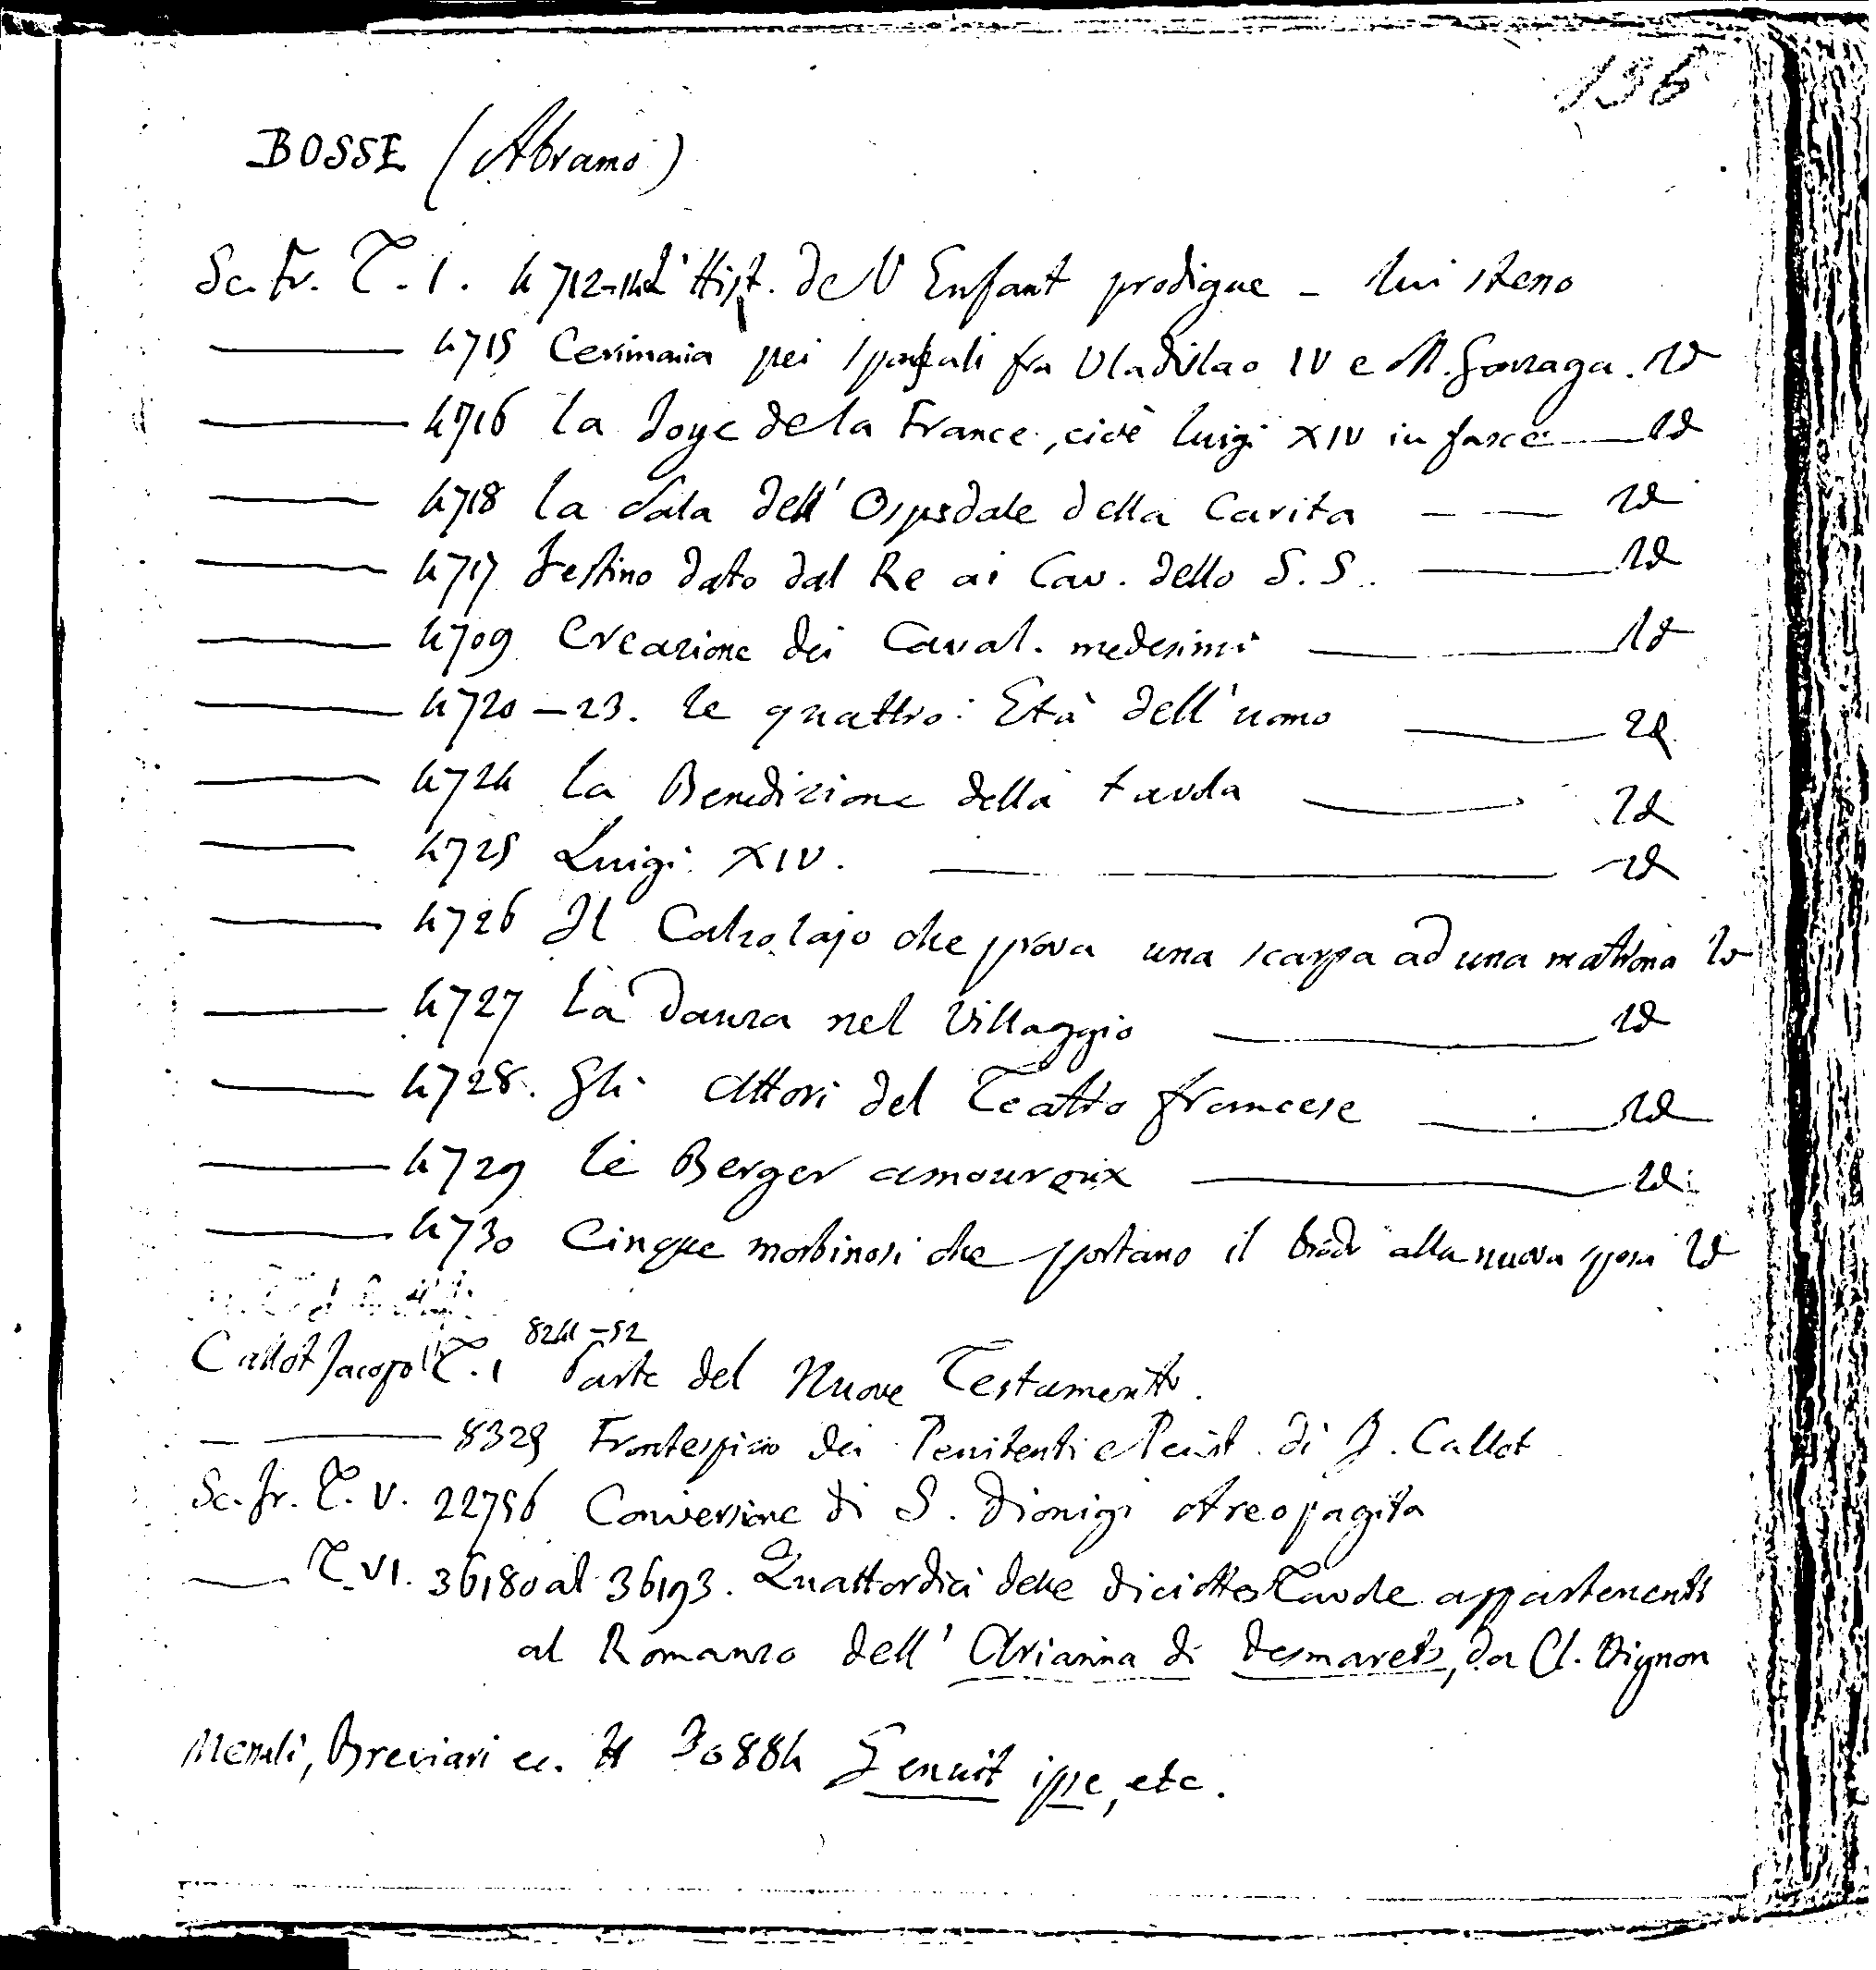 136
BOSSE (Abramo)
Sc. Fr. T. I. 4712-14 L'Hist. de l'Enfant prodigue - lui steso
4715 Cerimonia pei sponsali fra Vladislao IV e M. Gonzaga. Id
4716 la Joye de la France, cioè luigi XIV in fasce Id
4718 la Sala dell'Ospedale della Carita Id
4717 Festino dato dal Re ai Cav. dello S. S. Id
4709 Creazione dei Caval. medesimi Id
4720-23. le quattro Età dell'uomo Id
4724 la Benedizione della tavola Id
4725 Luigi XIV. Id
4726 Il Calzolajo che prova una scarpa ad una matrona Id
4727 la Danza nel Villaggio Id
4728. Gli Attori del Teatro francese Id
4729 le Berger amoureux Id
4730 Cinque morbinosi che portano il brodo alla nuova sposa Id
Callot Jacopo T. I 8241-52 Parte del Nuovo Testamento.
8329 Frontespizio dei Penitenti e Penit. di J. Callot
Sc. Fr. T. V. 22756 Conversione di S. Dionigi Areopagita
T. VI. 36180 al 36193. Quattordici delle diciotto Tavole appartenenti
al Romanzo dell'Arianna di Desmarets, da Cl. Vignon
Messali, Breviari ec. 30884 Genuit ipse, etc.